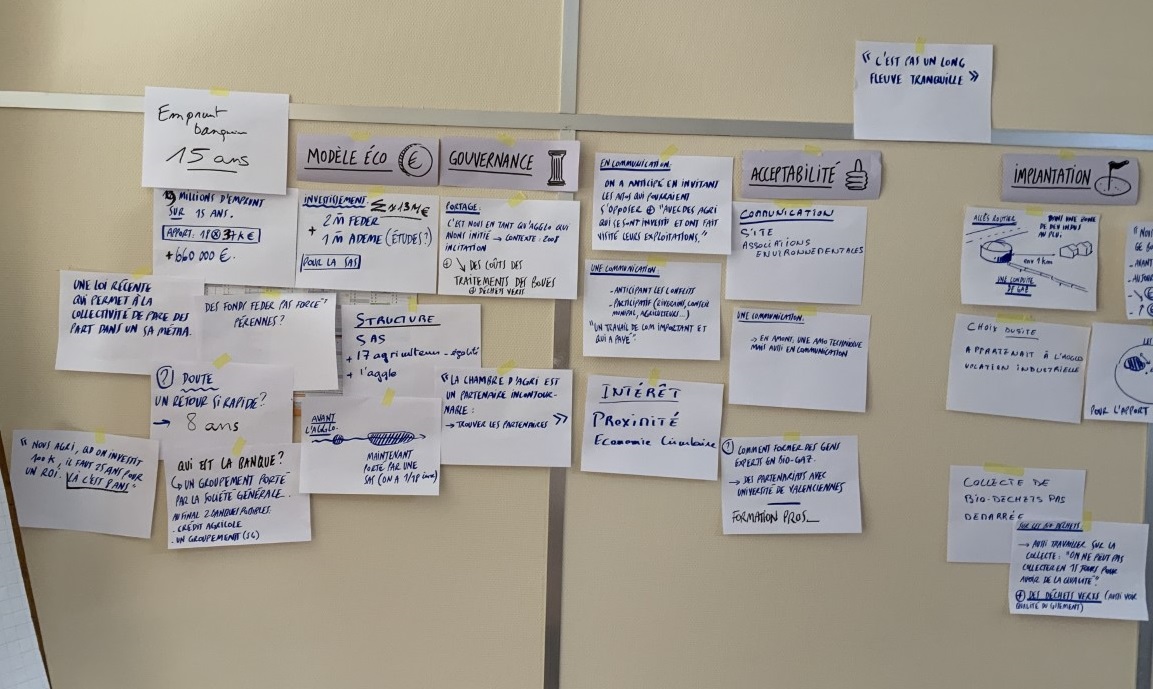 « C'EST PAS UN LONG
FLEUVE TRANQUILLE »
Emprunt
bancaire
15 ans
MILLIONS D'EMPRUNT
SUR 15 ANS.
APPORT: 18 ⊗ 37 K €
+ 660 000 €.
UNE LOI RÉCENTE
QUI PERMET À LA
COLLECTIVITÉ DE
PART DANS UN SA MÉTHA.
DES FONDS FEDER PAS FORCÉ
PÉRENNES ?
? DOUTE
UN RETOUR SI RAPIDE?
→ 8 ans
« NOUS AGRI, QD ON INVESTIT
100 K, IL FAUT 25 ANS POUR
UN ROI. LÀ C'EST 8 ANS."
QUI EST LA BANQUE?
UN GROUPEMENT PORTÉ
PAR LA SOCIÉTÉ GÉNÉRALE.
AU FINAL 2 BANQUES
- CRÉDIT AGRICOLE
- UN GROUPEMENT (SG)
MODÈLE ÉCO €
INVESTISSEMENT: 13 M €
2 M FEDER
+ 1 M ADEME (ÉTUDES?)
POUR LA SAS
STRUCTURE
SAS
+ 17 agriculteurs - égalité
+ l'agglo
AVANT
L'AGGLO.
MAINTENANT
PORTÉ PAR UNE
SAS (ON A 1/18
GOUVERNANCE
PORTAGE:
C'EST NOUS EN TANT QU'AGGLO QUI
AVONS INITIÉ → CONTEXTE: 2008
INCITATION
⊕ ↘ DES COÛTS DES
TRAITEMENTS DES BOUES
⊕ DÉCHETS VERTS
"LA CHAMBRE D'AGRI EST
UN PARTENAIRE INCONTOUR-
NABLE:
→ TROUVER LES PARTENAIRES »
EN COMMUNICATION:
ON A ANTICIPÉ EN INVITANT
LES ASSOS QUI POURRAIENT
S'OPPOSER ⊕ "AVEC DES AGRI
QUI SE SONT INVESTIS ET ONT FAIT
VISITÉ LEURS EXPLOITATIONS."
UNE COMMUNICATION:
- ANTICIPANT LES CONFLITS
- PARTICIPATIF (RIVERAINS, CONSEIL
MUNICIPAL, AGRICULTEURS...)
"UN TRAVAIL DE COM IMPORTANT ET
QUI A PAYÉ".
INTÉRÊT
PROXIMITÉ
Economie Circulaire
ACCEPTABILITÉ
COMMUNICATION
SITE
ASSOCIATIONS
ENVIRONNEMENTALES
UNE COMMUNICATION:
→ EN AMONT, UNE AMO TECHNIQUE
MAIS AUSSI EN COMMUNICATION
? COMMENT FORMER DES GENS
EXPERTS EN BIO-GAZ.
→ DES PARTENARIATS AVEC
UNIVERSITÉ DE VALENCIENNES
FORMATION PROS
IMPLANTATION
ACCÈS ROUTIER
DANS UNE ZONE
DE DEV INDUS
AU PLU.
env 1 km
UNE CONDUITE
DE GAZ
CHOIX DU SITE
APPARTENAIT À L'AGGLO
VOCATION INDUSTRIELLE
COLLECTE DE
BIO-DÉCHETS PAS
DÉMARRÉE
SUR LES BIO DÉCHETS
→ AUSSI TRAVAILLER SUR LA
COLLECTE: "ON NE PEUT PAS
COLLECTER EN 15 JOURS POUR
AVOIR DE LA QUALITÉ".
⊕ DES DÉCHETS VERTS (AUSSI VOIR
QUALITÉ DU GISEMENT)
"NOUS
GE
- AVANT
LES
POUR L'APPORT